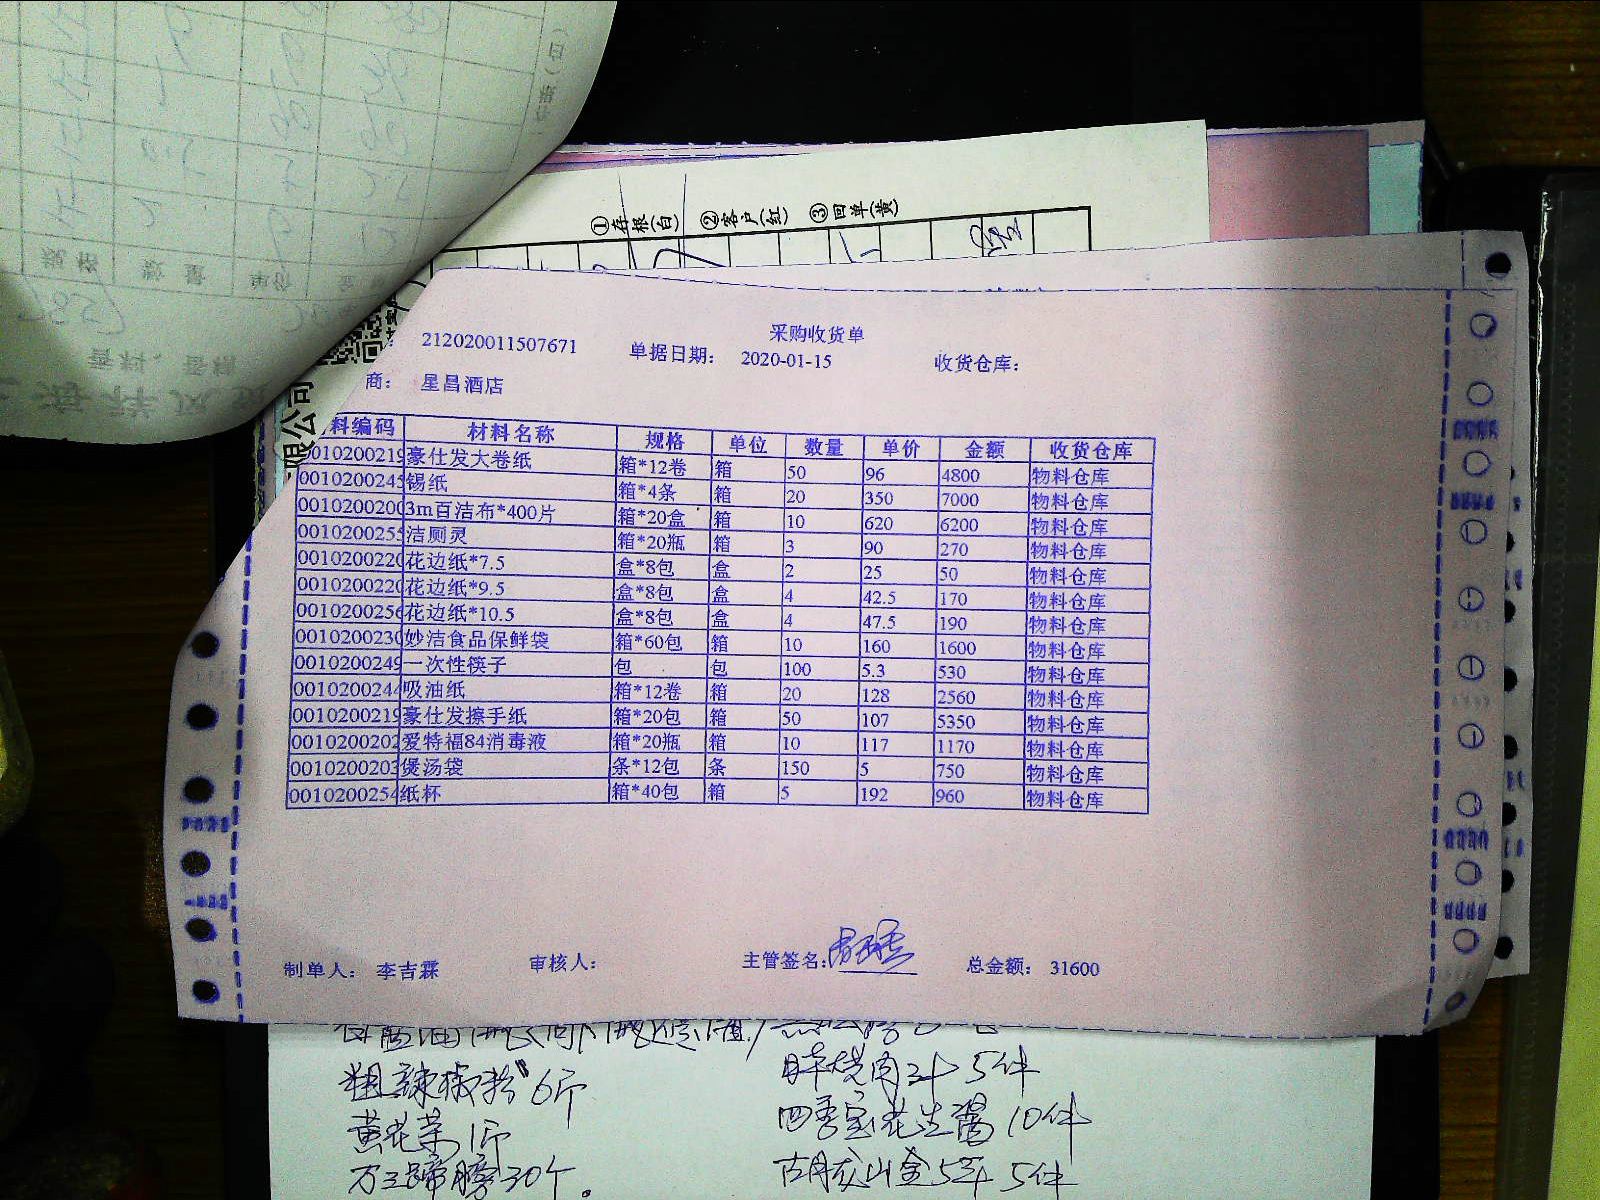 ①存根(白) ②客户(红) ③回单(黄)
限公司
采购收货单
212020011507671 单据日期： 2020-01-15 收货仓库：
商： 星昌酒店
料编码 材料名称 规格 单位 数量 单价 金额 收货仓库
0010200219 豪仕发大卷纸 箱*12卷 箱 50 96 4800 物料仓库
0010200245 锡纸 箱*4条 箱 20 350 7000 物料仓库
0010200200 3m百洁布*400片 箱*20盒 箱 10 620 6200 物料仓库
0010200255 洁厕灵 箱*20瓶 箱 3 90 270 物料仓库
0010200220 花边纸*7.5 盒*8包 盒 2 25 50 物料仓库
0010200220 花边纸*9.5 盒*8包 盒 4 42.5 170 物料仓库
0010200256 花边纸*10.5 盒*8包 盒 4 47.5 190 物料仓库
0010200230 妙洁食品保鲜袋 箱*60包 箱 10 160 1600 物料仓库
0010200249 一次性筷子 包 包 100 5.3 530 物料仓库
0010200244 吸油纸 箱*12卷 箱 20 128 2560 物料仓库
0010200219 豪仕发擦手纸 箱*20包 箱 50 107 5350 物料仓库
0010200202 爱特福84消毒液 箱*20瓶 箱 10 117 1170 物料仓库
0010200203 煲汤袋 条*12包 条 150 5 750 物料仓库
0010200254 纸杯 箱*40包 箱 5 192 960 物料仓库
制单人： 李吉霖 审核人： 主管签名： 总金额： 31600
粗辣椒粉 6斤 5件
黄花菜 1斤 四季宝花生酱 10件
万三蹄膀 30个。 古越龙山金5年 5件